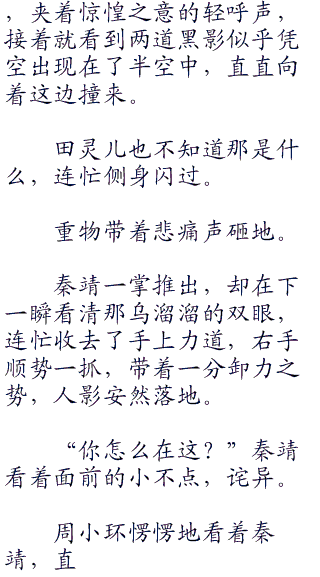 ，夹着惊惶之意的轻呼声，
接着就看到两道黑影似乎凭
空出现在了半空中，直直向
着这边撞来。
田灵儿也不知道那是什
么，连忙侧身闪过。
重物带着悲痛声砸地。
秦靖一掌推出，却在下
一瞬看清那乌溜溜的双眼，
连忙收去了手上力道，右手
顺势一抓，带着一分卸力之
势，人影安然落地。
“你怎么在这？”秦靖
看着面前的小不点，诧异。
周小环愣愣地看着秦
靖，直